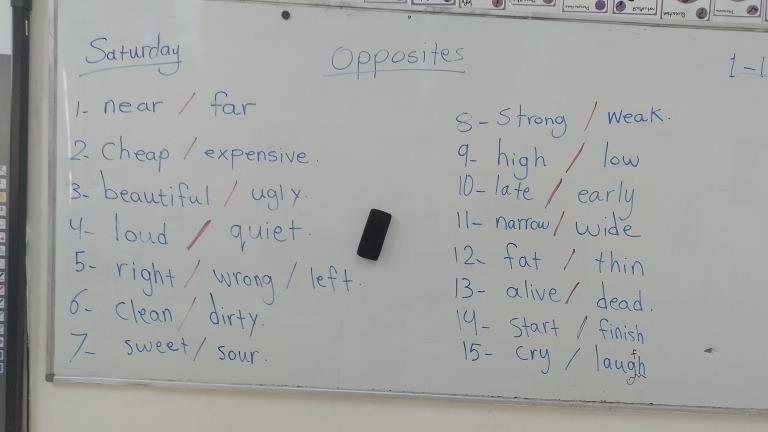 Saturday
Opposites
1-1
1- near / far
2- cheap / expensive.
3- beautiful / ugly.
4- loud / quiet.
5- right / wrong / left.
6- clean / dirty.
7- sweet / sour.
8- strong / weak.
9- high / low
10- late / early
11- narrow / wide
12- fat / thin
13- alive / dead.
14- start / finish
15- cry / laugh
f